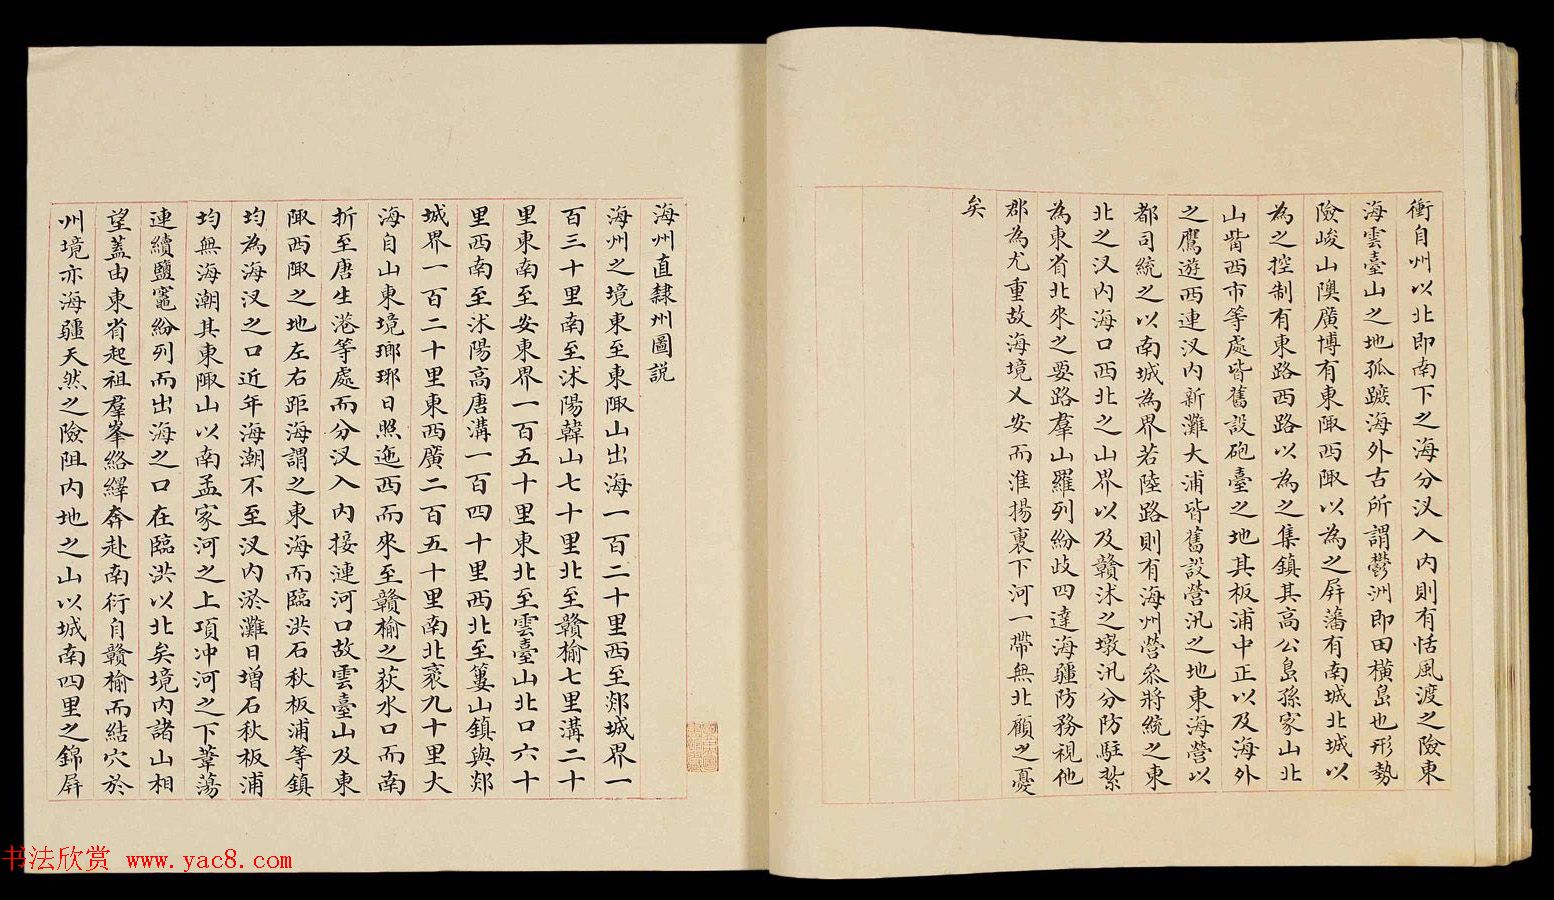 衝自州以北即南下之海分汊入內則有恬風渡之險東
海雲臺山之地孤巇海外古所謂鬱洲即田橫島也形勢
險峻山隩廣博有東陬西陬以為之屏藩有南城北城以
為之控制有東路西路以為之集鎮其高公島孫家山北
山觜西市等處皆舊設砲臺之地其板浦中正以及海外
之鷹遊西連汊內新灘大浦皆舊設營汛之地東海營以
都司統之以南城為界若陸路則有海州營參將統之東
北之汊內海口西北之山界以及贛沭之墩汛分防駐紮
為東省北來之要路羣山羅列紛歧四達海疆防務視他
郡為尤重故海境乂安而淮揚裏下河一帶無北顧之憂
矣
海州直隸州圖説
海州之境東至東陬山出海一百二十里西至郯城界一
百三十里南至沭陽韓山七十里北至贛榆七里溝二十
里東南至安東界一百五十里東北至雲臺山北口六十
里西南至沭陽高唐溝一百四十里西北至簍山鎮與郯
城界一百二十里東西廣二百五十里南北袤九十里大
海自山東境瑯琊日照迤西而來至贛榆之荻水口而南
折至唐生港等處而分汊入內接漣河口故雲臺山及東
陬西陬之地左右距海謂之東海而臨洪石秋板浦等鎮
均為海汊之口近年海潮不至汊內淤灘日增石秋板浦
均無海潮其東陬山以南孟家河之上項冲河之下葦蕩
連續鹽竈紛列而出海之口在臨洪以北矣境內諸山相
望蓋由東省起祖羣峯絡繹奔赴南衍自贛榆而結穴於
州境亦海疆天然之險阻內地之山以城南四里之錦屏
书法欣赏 www.yac8.com